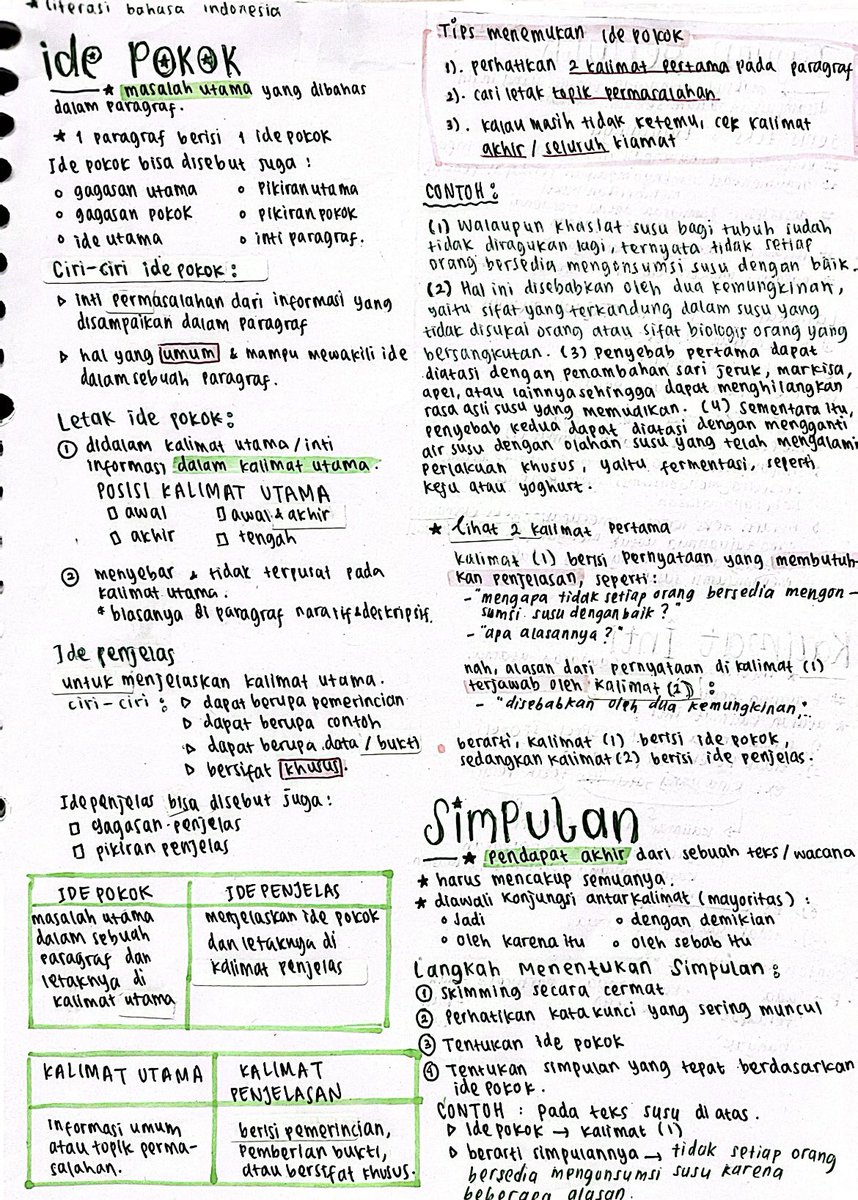 * literasi bahasa indonesia
ide POKOK
* masalah utama yang dibahas
dalam paragraf.
* 1 paragraf berisi 1 ide pokok
Ide pokok bisa disebut juga :
o gagasan utama o pikiran utama
o gagasan pokok o pikiran pokok
o ide utama o inti paragraf.
Ciri-ciri ide pokok :
▷ inti permasalahan dari informasi yang
disampaikan dalam paragraf
▷ hal yang umum & mampu mewakili ide
dalam sebuah paragraf.
Letak ide pokok :
① didalam kalimat utama / inti
informasi dalam kalimat utama.
POSISI KALIMAT UTAMA
□ awal □ awal & akhir
□ akhir □ tengah
② menyebar & tidak terpusat pada
kalimat utama.
* biasanya di paragraf naratif & deskripsif.
Ide penjelas
untuk menjelaskan kalimat utama.
ciri-ciri : ▷ dapat berupa pemerincian
▷ dapat berupa contoh
▷ dapat berupa data / bukti
▷ bersifat khusus.
Ide penjelas bisa disebut juga :
□ gagasan penjelas
□ pikiran penjelas
IDE POKOK
masalah utama
dalam sebuah
paragraf dan
letaknya di
kalimat utama
IDE PENJELAS
menjelaskan ide pokok
dan letaknya di
kalimat penjelas
KALIMAT UTAMA
Informasi umum
atau topik perma-
salahan.
KALIMAT
PENJELASAN
berisi pemerincian,
pemberian bukti,
atau bersifat khusus.
Tips menemukan ide pokok
1). perhatikan 2 kalimat pertama pada paragraf
2). cari letak topik permasalahan
3). kalau masih tidak ketemu, cek kalimat
akhir / seluruh kiamat
CONTOH :
(1) Walaupun khasiat susu bagi tubuh sudah
tidak diragukan lagi, ternyata tidak setiap
orang bersedia mengonsumsi susu dengan baik.
(2) Hal ini disebabkan oleh dua kemungkinan,
yaitu sifat yang terkandung dalam susu yang
tidak disukai orang atau sifat biologis orang yang
bersangkutan. (3) Penyebab pertama dapat
diatasi dengan penambahan sari jeruk, markisa,
apel, atau lainnya sehingga dapat menghilangkan
rasa asli susu yang memualkan. (4) Sementara itu,
penyebab kedua dapat diatasi dengan mengganti
air susu dengan olahan susu yang telah mengalami
perlakuan khusus, yaitu fermentasi, seperti
keju atau yoghurt.
* lihat 2 kalimat pertama
kalimat (1) berisi pernyataan yang membutuh-
kan penjelasan, seperti :
- "mengapa tidak setiap orang bersedia mengon-
sumsi susu dengan baik ?"
- "apa alasannya ?"
nah, alasan dari pernyataan di kalimat (1)
terjawab oleh kalimat (2) :
- "disebabkan oleh dua kemungkinan".
berarti, kalimat (1) berisi ide pokok,
sedangkan kalimat (2) berisi ide penjelas.
Simpulan
* pendapat akhir dari sebuah teks / wacana
* harus mencakup semuanya.
* diawali konjungsi antarkalimat (mayoritas) :
o Jadi o dengan demikian
o oleh karena itu o oleh sebab itu
Langkah Menentukan Simpulan :
① skimming secara cermat
② Perhatikan kata kunci yang sering muncul
③ Tentukan ide pokok
④ Tentukan simpulan yang tepat berdasarkan
ide pokok.
CONTOH : pada teks susu di atas.
▷ Ide pokok → kalimat (1)
▷ berarti simpulannya → tidak setiap orang
bersedia mengonsumsi susu karena
beberapa alasan.